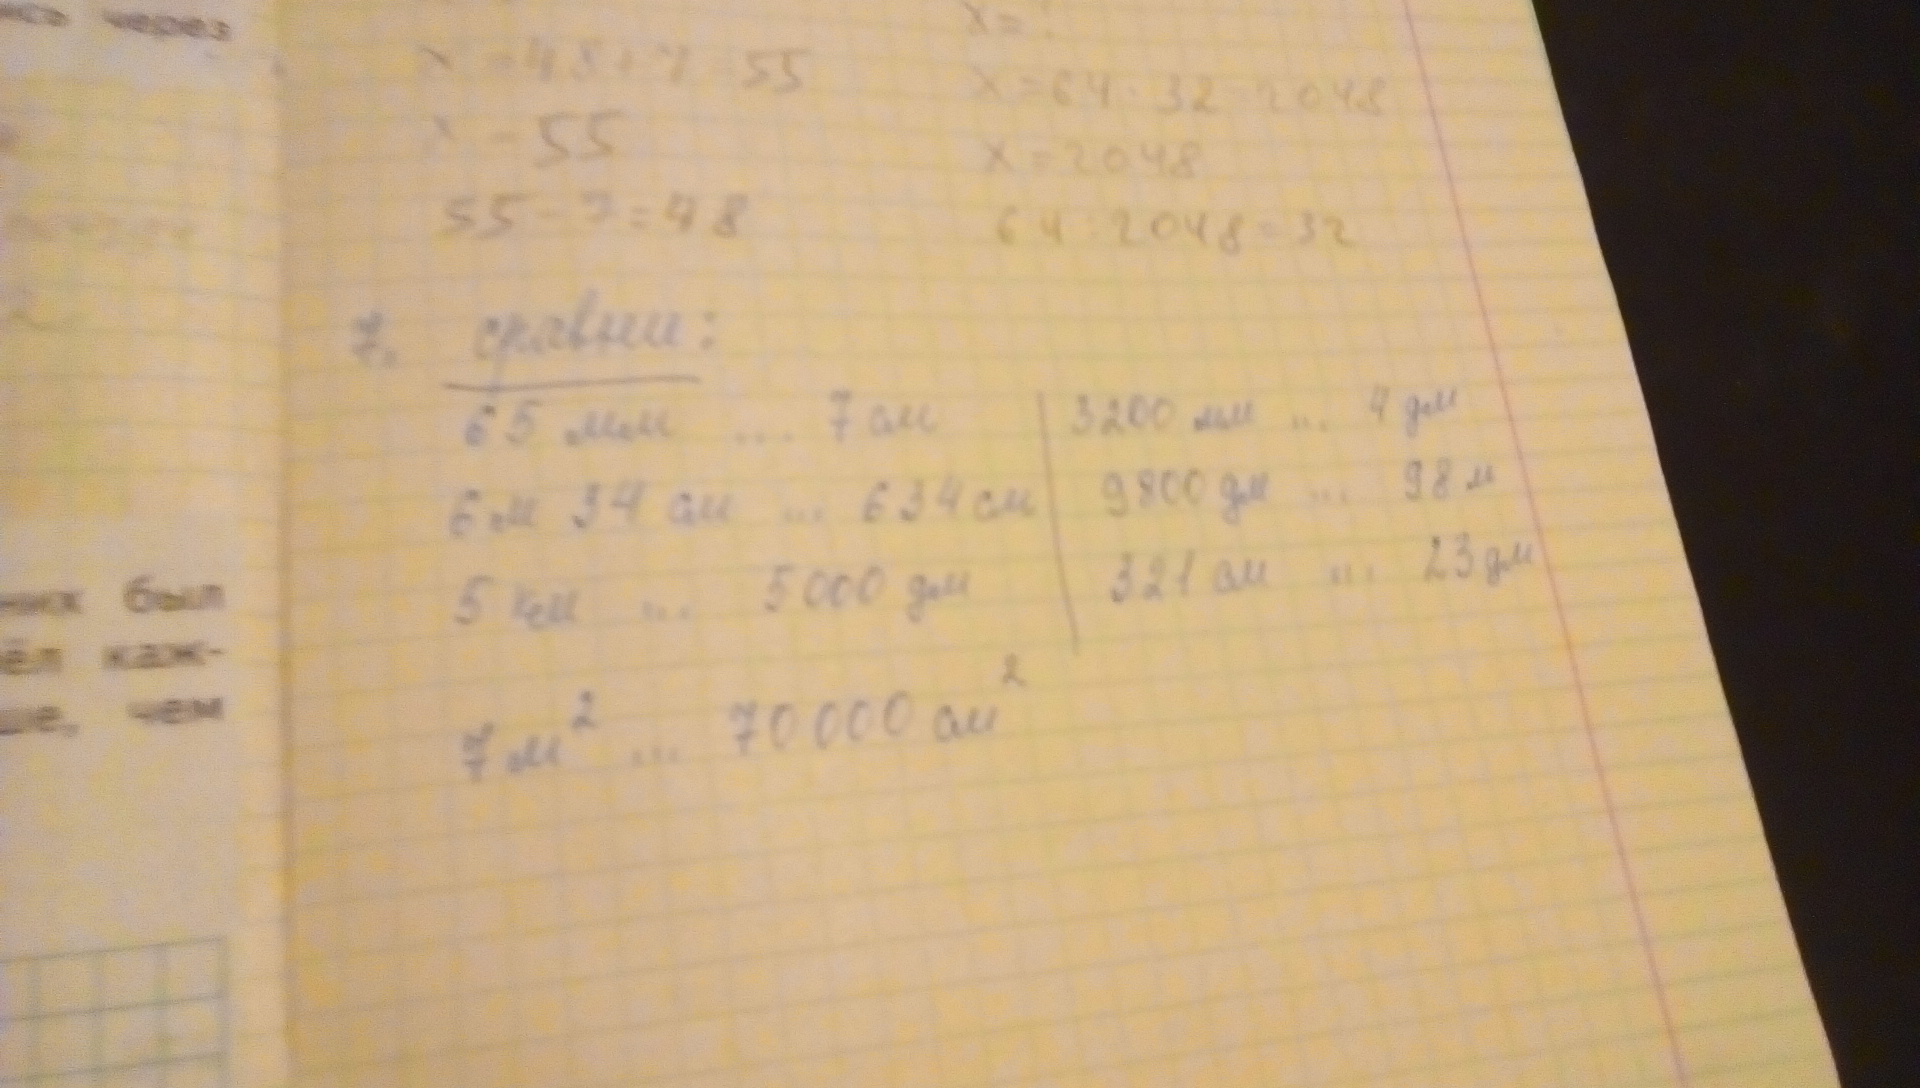 через
x = 48 + 7 = 55
x = 55
55 - 7 = 48
x = ?
x = 64 · 32 = 2048
x = 2048
64 : 2048 = 32
7. сравни:
65 мм ... 7 см
6 м 34 см ... 634 см
5 км ... 5000 дм
3200 мм ... 4 дм
9800 дм ... 98 м
321 см ... 23 дм
7 м² ... 70000 см²
был
каж-
чем